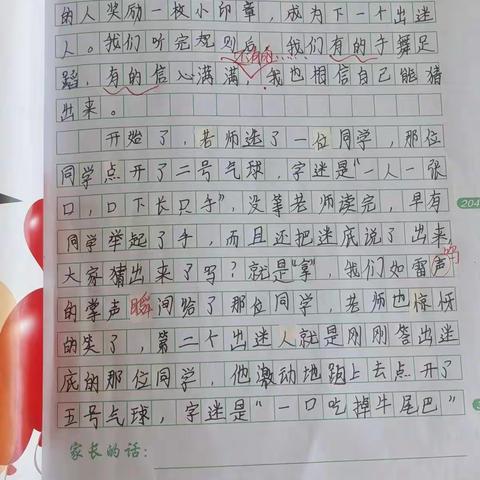 的人奖励一枚小印章，成为下一个出迷
人。我们听完规则后，我们有的手舞足
蹈，有的信心满满，我也相信自己能猜
出来。
开始了，老师选了一位同学，那位
同学点开了二号气球，字迷是“一人一张
口，口下长只手”，没等老师读完，早有
204
同学举起了手，而且还把迷底说了出来，
大家猜出来了吗？就是“拿”，我们如雷声
鸣
的掌声瞬间给了那位同学，老师也惊讶
的笑了，第二个出迷人就是刚刚答出迷
底的那位同学，他激动地跑上去点开了
五号气球，字迷是“一口吃掉牛尾巴”
家长的话：